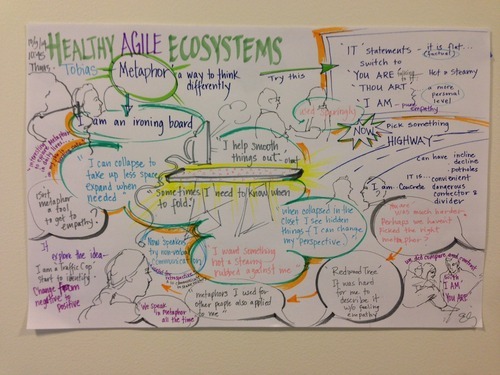 HEALTHY AGILE ECOSYSTEMS
10:45
Thurs.
Tobias
Metaphor: a way to think
differently
Try this
"IT" statements - it is flat...
(factual)
switch to
YOU ARE
Hot & steamy
THOU ART
a more
personal
level
I AM - pure
empathy
I am an ironing board
I help smooth
things out.
used sparingly
NOW
Pick something
HIGHWAY
can have incline
decline
potholes
IT is - convenient
dangerous
connector &
divider
I am. Concrete
"I can collapse, to
take up less space,
expand when
needed"
"Sometimes I need to know when
to fold."
isn't
metaphor
a tool
to get to
empathy?
Now speakers
try non-verbal
communication
"I want something
hot & steamy
rubbed against me"
when collapsed in the
closet I see hidden
things & I can change
my "perspective."
You are
was much harder -
Perhaps we haven't
picked the right
metaphor?
If
explore the idea -
I am a traffic cop
start to identify
Change from
negative to
positive
We speak
in metaphor
all the time
"metaphors I used for
other people also applied
to me"
Redwood Tree
It was hard
for me to
describe it
w/o feeling
empathy
we did compare and contrast
with
I AM
YOU ARE